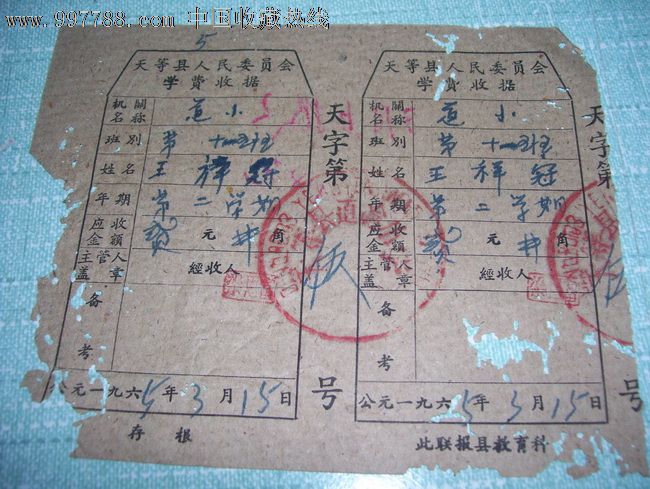 www.997788.com 中国收藏热线
5
天等县人民委员会
学费收据
机關名称 道小
班别 第十一班
姓名 王祥冠
年期 第二学期
应收金额 贰元 角
主管人盖章 經收人
备考
公元一九六5年3月15日
存根
天字第
伍
号
天等县人民委员会
学费收据
机關名称 道小
班别 第十一班
姓名 王祥冠
年期 第二学期
应收金额 贰元 角
主管人盖章 經收人
备考
公元一九六5年3月15日
此联报县教育科
天字第
号